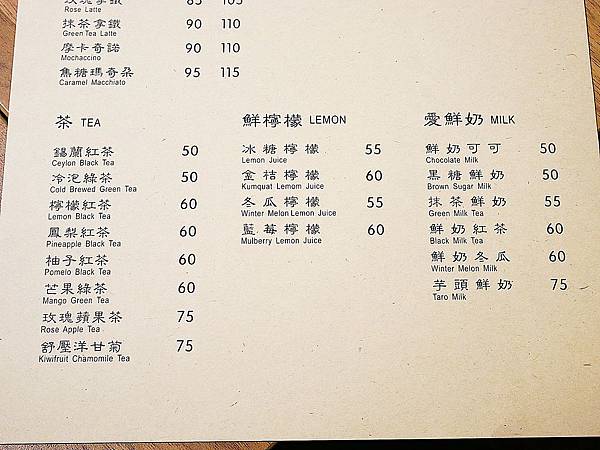 玫瑰拿鐵 85 105
Rose Latte
抹茶拿鐵 90 110
Green Tea Latte
摩卡奇諾 90 110
Mochaccino
焦糖瑪奇朵 95 115
Caramel Macchiato
茶 TEA
錫蘭紅茶 50
Ceylon Black Tea
冷泡綠茶 50
Cold Brewed Green Tea
檸檬紅茶 60
Lemon Black Tea
鳳梨紅茶 60
Pineapple Black Tea
柚子紅茶 60
Pomelo Black Tea
芒果綠茶 60
Mango Green Tea
玫瑰蘋果茶 75
Rose Apple Tea
舒壓洋甘菊 75
Kiwifruit Chamomile Tea
鮮檸檬 LEMON
冰糖檸檬 55
Lemon Juice
金桔檸檬 60
Kumquat Lemom Juice
冬瓜檸檬 55
Winter Melon Lemon Juice
藍莓檸檬 60
Mulberry Lemon Juice
愛鮮奶 MILK
鮮奶可可 50
Chocolate Milk
黑糖鮮奶 50
Brown Sugar Milk
抹茶鮮奶 55
Green Milk Tea
鮮奶紅茶 60
Black Milk Tea
鮮奶冬瓜 60
Winter Melon Milk
芋頭鮮奶 75
Taro Milk